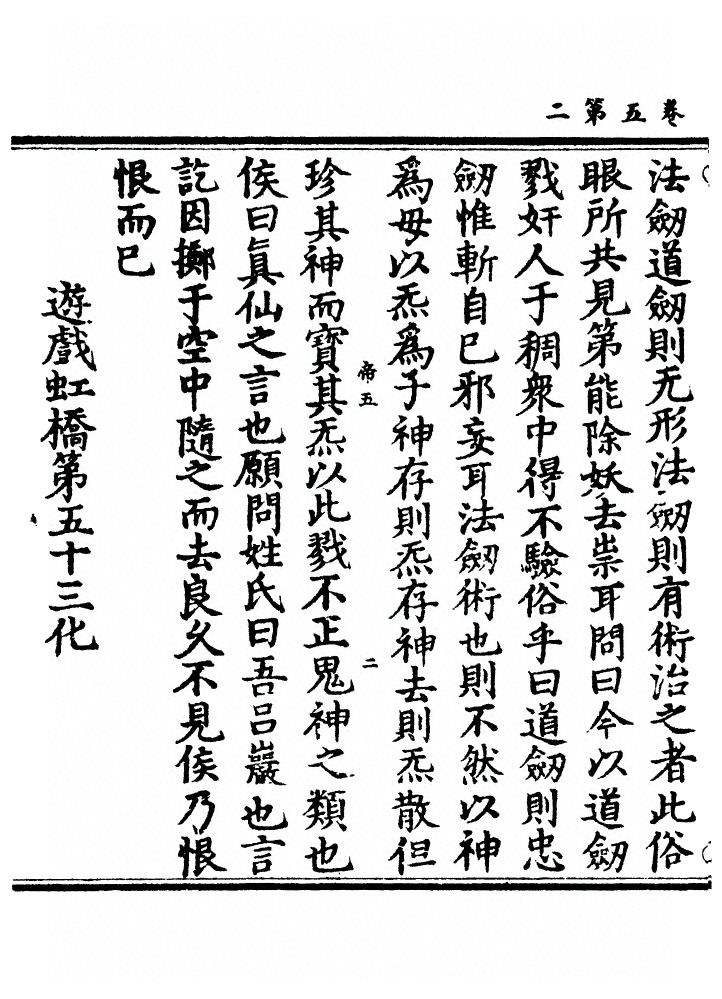 卷五第二
法劒道劒則无形法劒則有術治之者此俗
眼所共見第能除妖去祟耳問曰今以道劒
戮奸人于稠衆中得不驗俗乎曰道劒則忠
劒惟斬自巳邪妄耳法劒術也則不然以神
爲母以炁爲子神存則炁存神去則炁散但
帝五
二
珍其神而寶其炁以此戮不正鬼神之類也
侯曰眞仙之言也願問姓氏曰吾吕巖也言
訖因擲于空中隨之而去良久不見侯乃恨
恨而巳
遊戲虹橋第五十三化